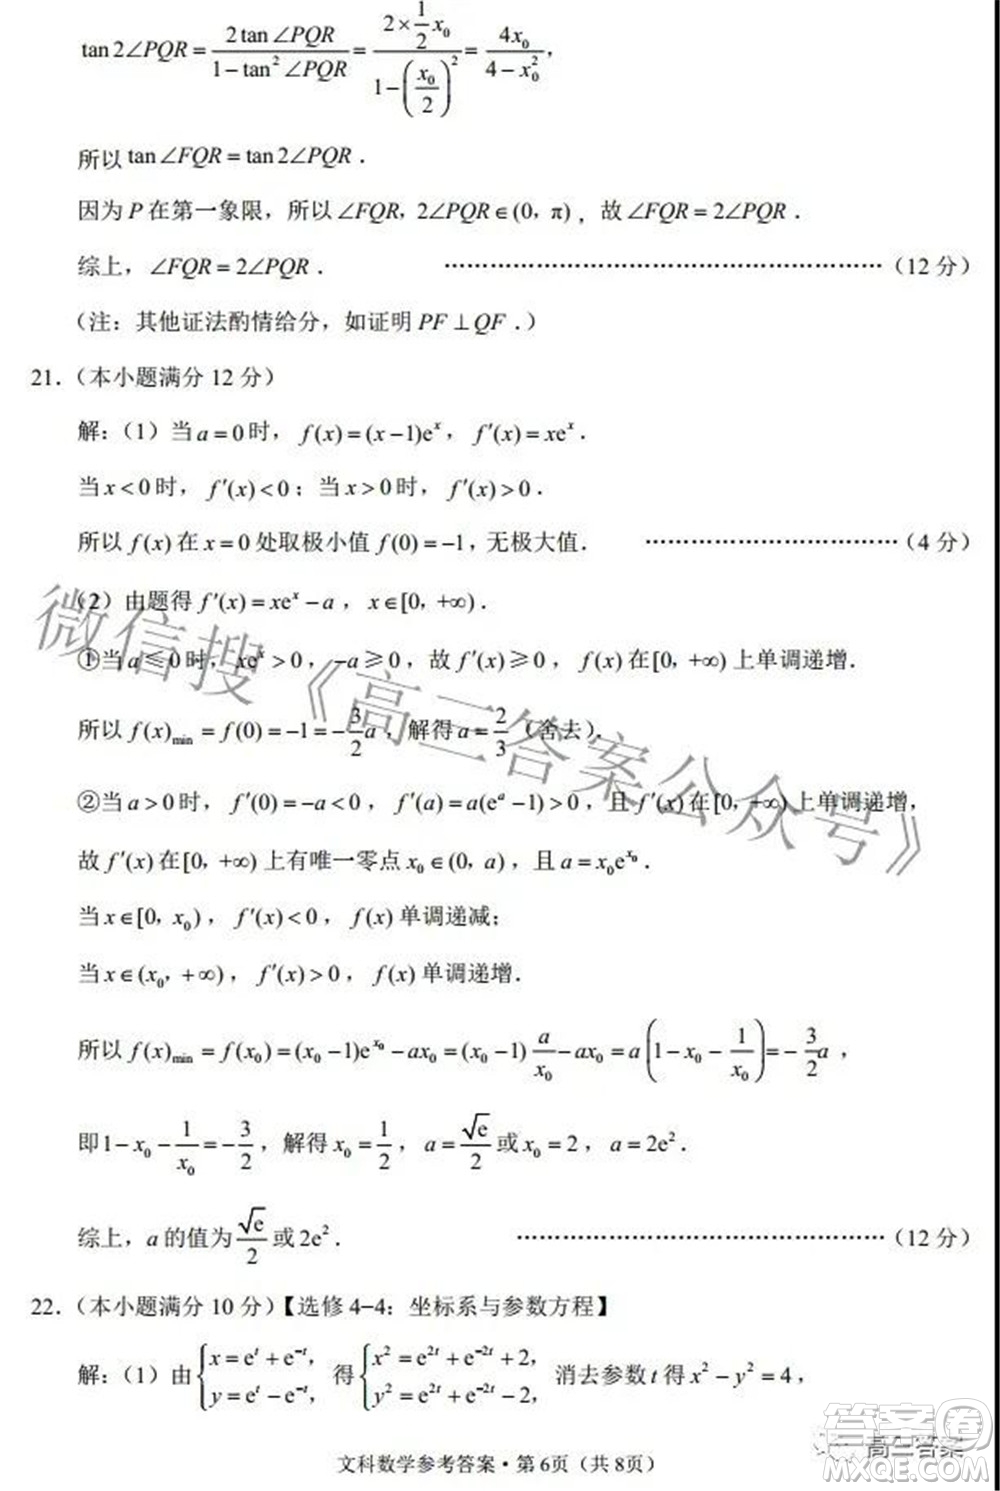 tan2∠PQR = 2tan∠PQR / (1−tan²∠PQR) = (2×½x₀) / (1−(x₀/2)²) = 4x₀ / (4−x₀²),
所以 tan∠FQR = tan2∠PQR .
因为 P 在第一象限，所以 ∠FQR，2∠PQR∈(0，π)，故 ∠FQR = 2∠PQR .
综上，∠FQR = 2∠PQR . ………………………………………………（12 分）
（注：其他证法酌情给分，如证明 PF⊥QF .）
21．（本小题满分 12 分）
解：（1）当 a=0 时， f(x)=(x−1)eˣ， f′(x)=xeˣ .
当 x<0 时， f′(x)<0；当 x>0 时， f′(x)>0 .
所以 f(x) 在 x=0 处取极小值 f(0)=−1，无极大值． ……………………………（4 分）
（2）由题得 f′(x)=xeˣ−a， x∈[0，+∞) .
①当 a≤0 时， xeˣ>0，−a≥0，故 f′(x)≥0， f(x) 在 [0，+∞) 上单调递增．
所以 f(x)min = f(0) = −1 = −3/2 a，解得 a=2/3（舍去）.
②当 a>0 时， f′(0)=−a<0， f′(a)=a(eᵃ−1)>0，且 f′(x) 在 [0，+∞) 上单调递增，
故 f′(x) 在 [0，+∞) 上有唯一零点 x₀∈(0，a)，且 a=x₀e^x₀ .
当 x∈[0，x₀)， f′(x)<0， f(x) 单调递减；
当 x∈(x₀，+∞)， f′(x)>0， f(x) 单调递增．
所以 f(x)min = f(x₀) = (x₀−1)e^x₀ − ax₀ = (x₀−1) a/x₀ − ax₀ = a(1−x₀−1/x₀) = −3/2 a，
即 1−x₀−1/x₀ = −3/2，解得 x₀=1/2， a=√e/2 或 x₀=2， a=2e² .
综上，a 的值为 √e/2 或 2e² . …………………………………………（12 分）
22．（本小题满分 10 分）【选修 4−4：坐标系与参数方程】
解：（1）由 {x=eᵗ+e⁻ᵗ， y=eᵗ−e⁻ᵗ， 得 {x²=e²ᵗ+e⁻²ᵗ+2， y²=e²ᵗ+e⁻²ᵗ−2， 消去参数 t 得 x²−y²=4，
文科数学参考答案·第 6页（共 8页）
微信搜《高三答案公众号》
答案圈
高三答案